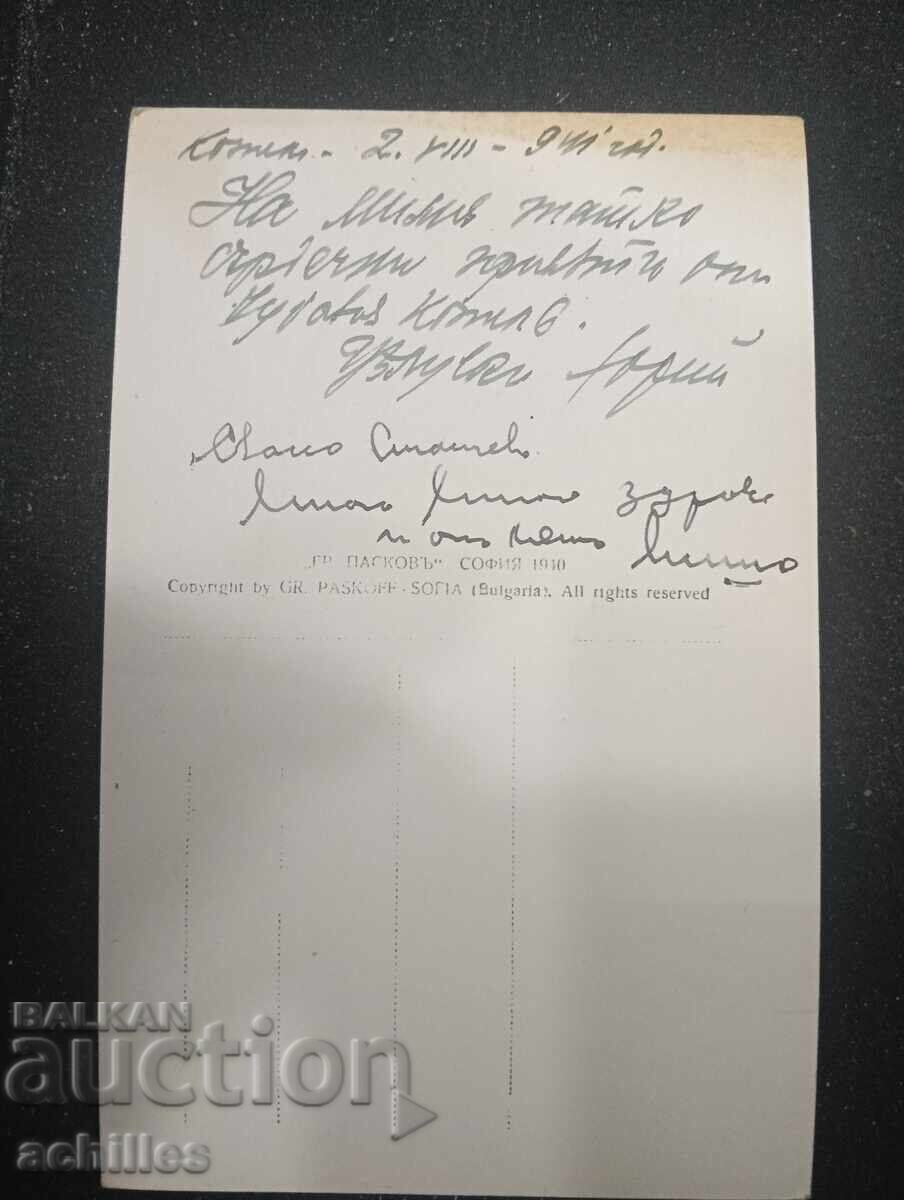 Котел - 2. VIII - 941 год.
На милия татко
сърдечни привети от
чудовия Котел.
Целувки
Много много здраве
и от мене
„ГР. ПАСКОВЪ“ СОФИЯ 1940
Copyright by GR. PASKOFF - SOFIA (Bulgaria). All rights reserved
BALKAN
auction
achilles